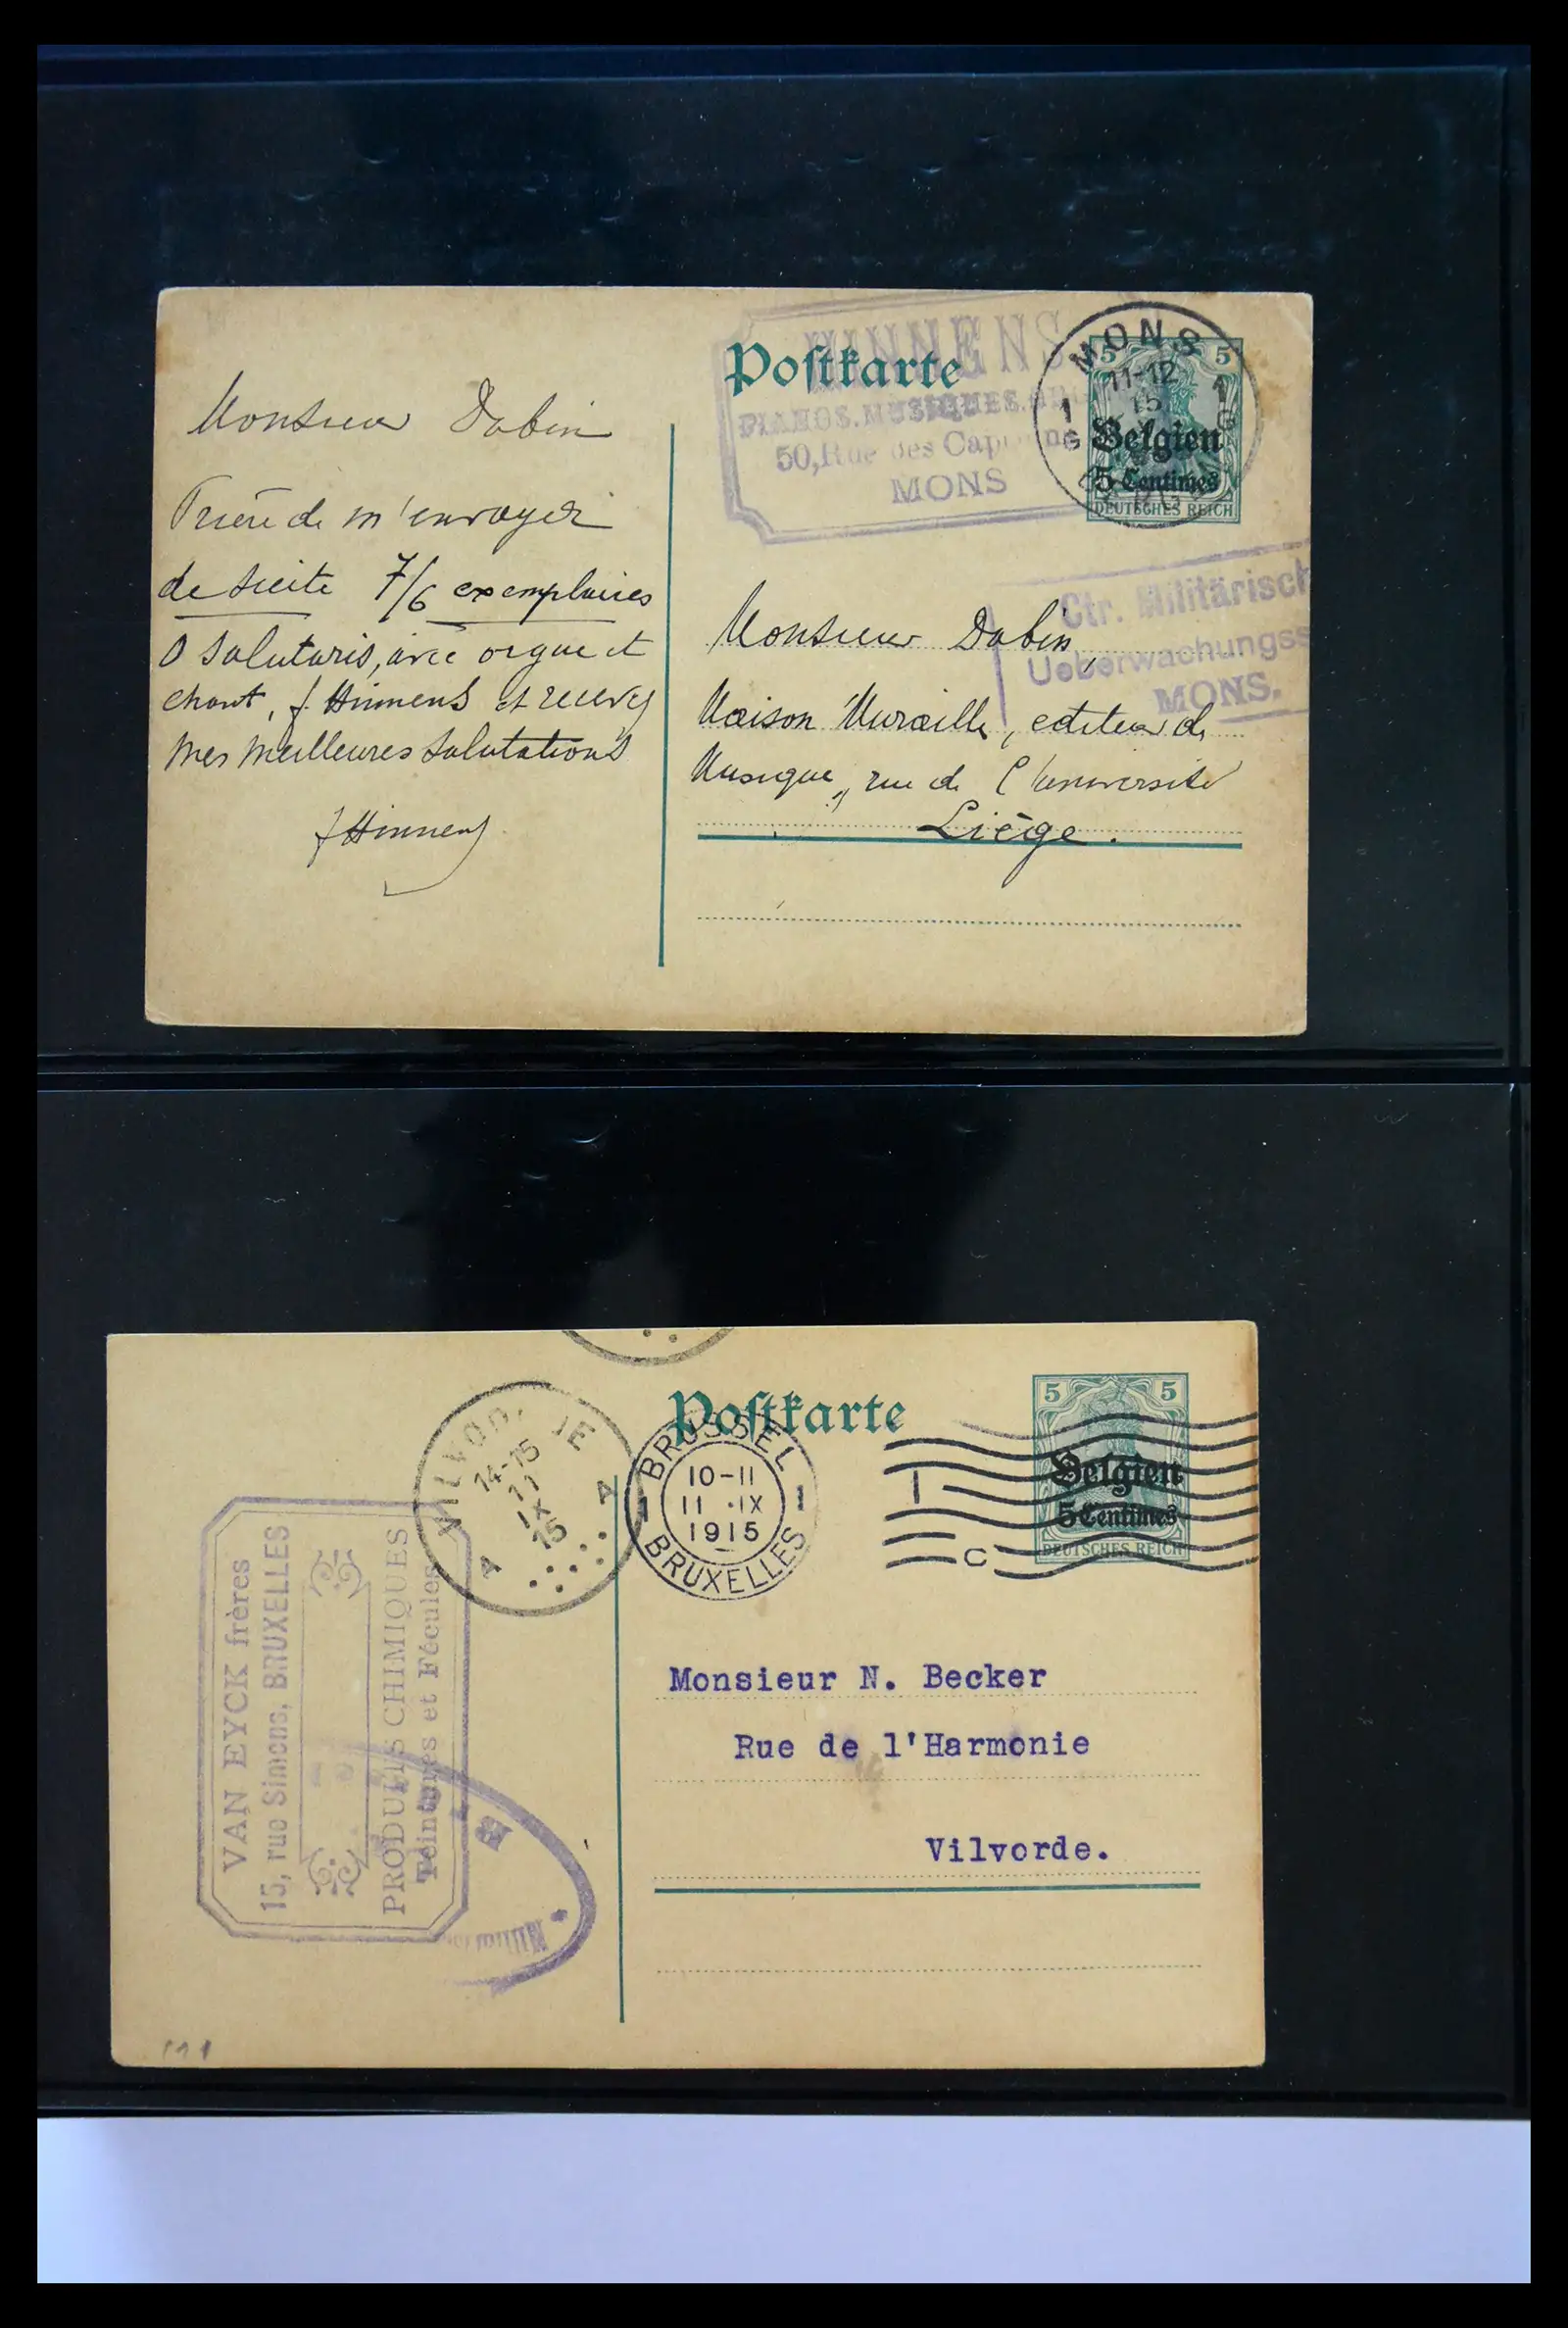 HINNENS
PIANOS. MUSIQUES.
50, Rue des
MONS
Postkarte
MONS
11-12
15
1 1
G G
5 5
Belgien
5 Centimes
DEUTSCHES REICH
Ctr. Militärisch
Ueberwachungss
MONS.
Monsieur Dabin
Prière de m'envoyer
de suite 7/6 exemplaires
O Salutaris, avec orgue et
chant, J. Hinnens et recevez
mes meilleures salutations
J Hinnens
Monsieur Dabin,
Maison Muraille, editeur de
Musique, rue de l'Université
Liège.
Postkarte
VILVORDE
14-15
11
IX
15
A A
BRUSSEL
10-11
11 ·IX
1915
1 1
BRUXELLES
I
C
5 5
Belgien
5 Centimes
DEUTSCHES REICH
VAN EYCK frères
15, rue Simons, BRUXELLES
PRODUITS CHIMIQUES
Teintures et Fécules
Monsieur N. Becker
Rue de l'Harmonie
Vilvorde.